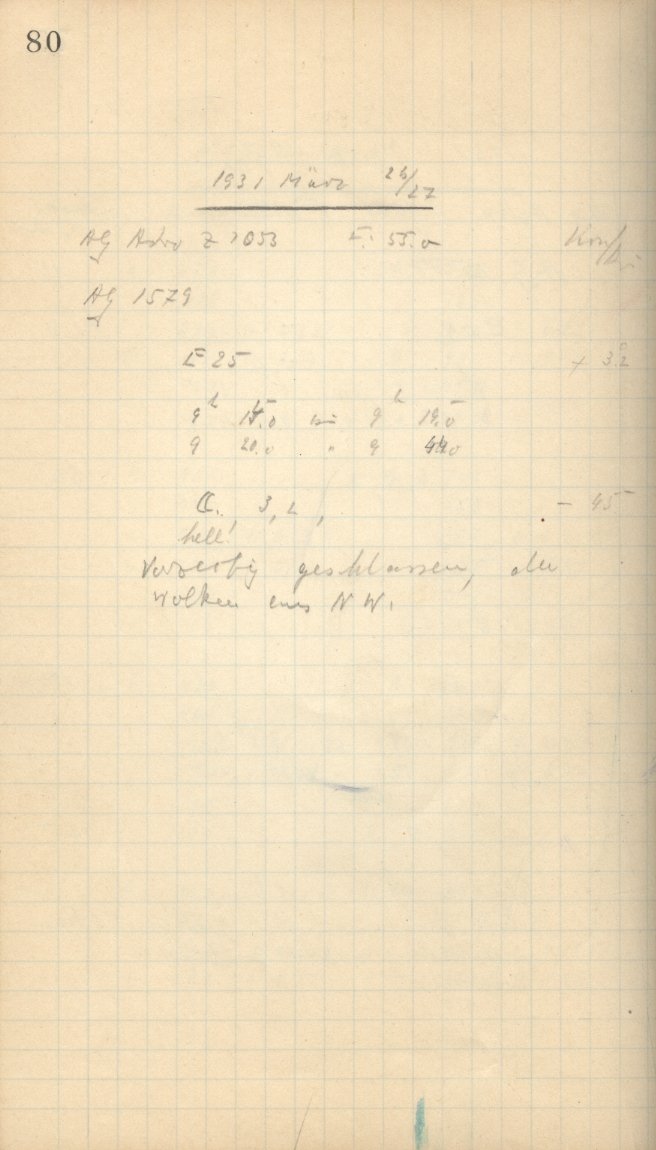 80
1931 März 26/27
AG Astro Z 7053 E. 55.0
AG 1579
E 25 + 3.2
9h 15.0 bis 9h 19.0
9 20.0 " 9 44.0
☾, 3, 2, - 45
hell!
Vorzeitig geschlossen, da
Wolken aus NW.